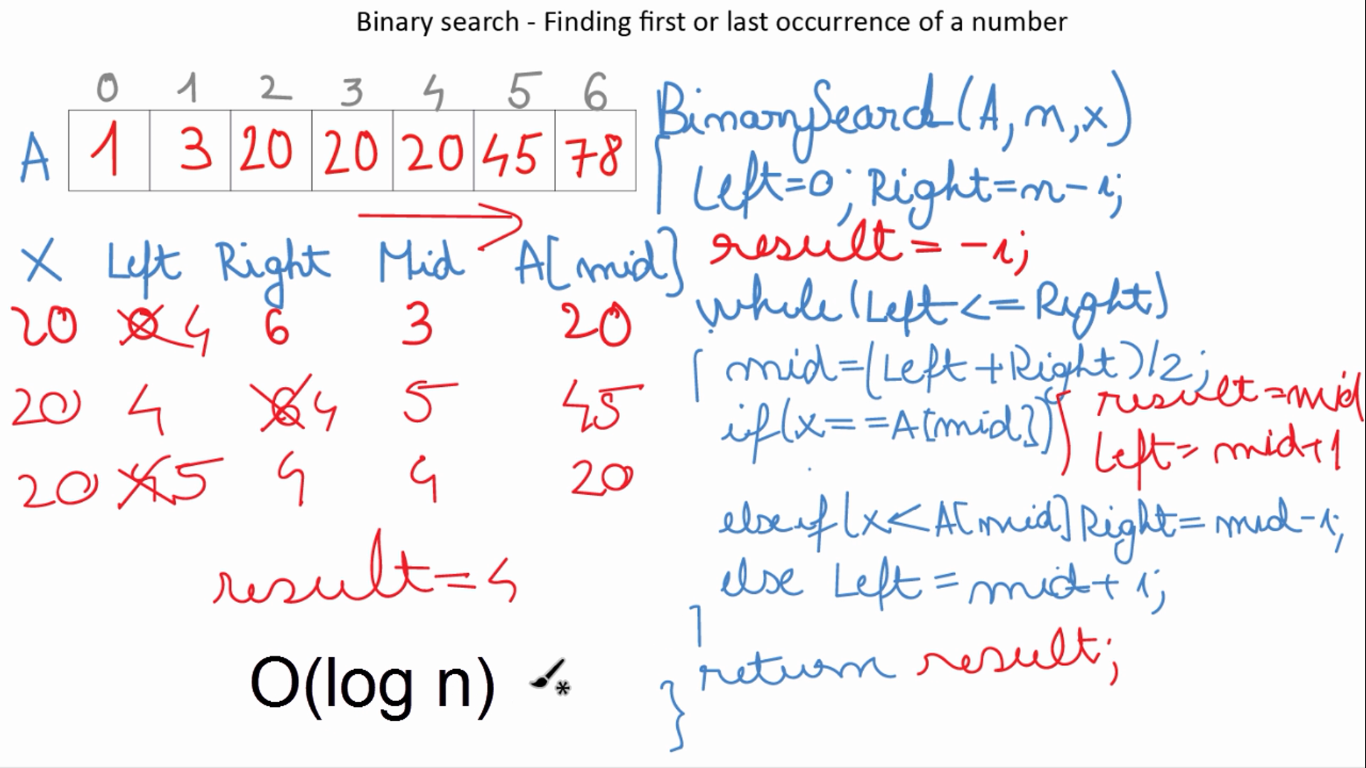 Binary search - Finding first or last occurrence of a number
0 1 2 3 4 5 6
A 1 3 20 20 20 45 78
X Left Right Mid A[mid]
20 0 4 6 3 20
20 4 6 4 5 45
20 4 5 4 4 20
result=4
O(log n)
*
BinarySearch(A,n,x)
{ Left=0; Right=n-1;
result=-1;
while(Left<=Right)
{ mid=(Left+Right)/2;
if(x==A[mid]) { result=mid
Left=mid+1
elseif(x<A[mid] Right=mid-1;
else Left=mid+1;
}
return result;
}